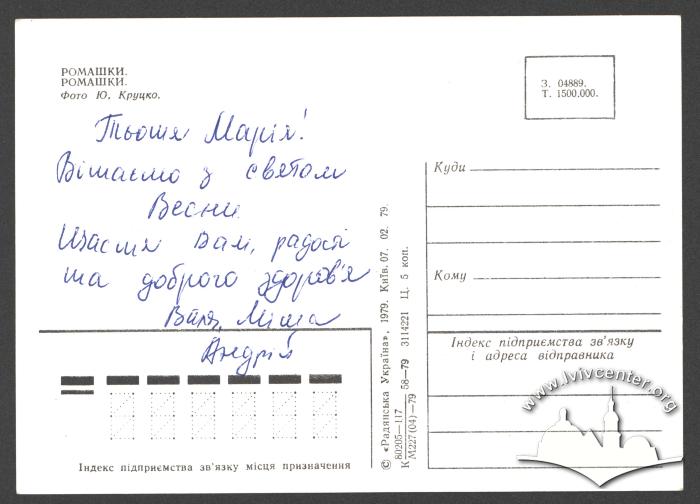 РОМАШКИ.
РОМАШКИ.
Фото Ю. Круцко.
З. 04889.
Т. 1500,000.
Тьотя Марія!
Вітаємо з святом
Весни
Щастя Вам, радості
та доброго здоров'я
Валя, Міша
Андрій
Куди
Кому
Індекс підприємства зв'язку
і адреса відправника
Індекс підприємства зв'язку місця призначення
© «Радянська Україна», 1979. Київ. 07. 02. 79.
80205—117
К М227(04)—79 58—79 3114221 Ц. 5 коп.
www.lvivcenter.org